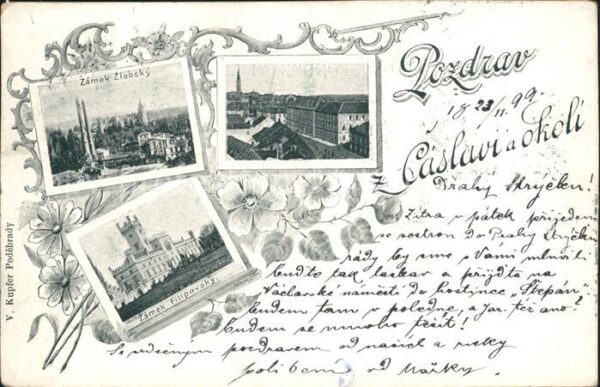 Pozdrav
18 23/11 99.
z Čáslavi a okolí
Zámek Žlebský
Zámek Filipovský.
V. Kupfer Poděbrady
Drahý Strýčku!
Zítra v pátek přijedem
se sestrou do Prahy Strýčku
rády by sme s Vámi mluvili
buďte tak laskav a přijďte na
Václavské náměstí do hostince „Štěpán“.
budem tam v poledne, a
budem se mnoho těšit!
Se srdečným pozdravem od našich a ruku
políbení od Mářky.